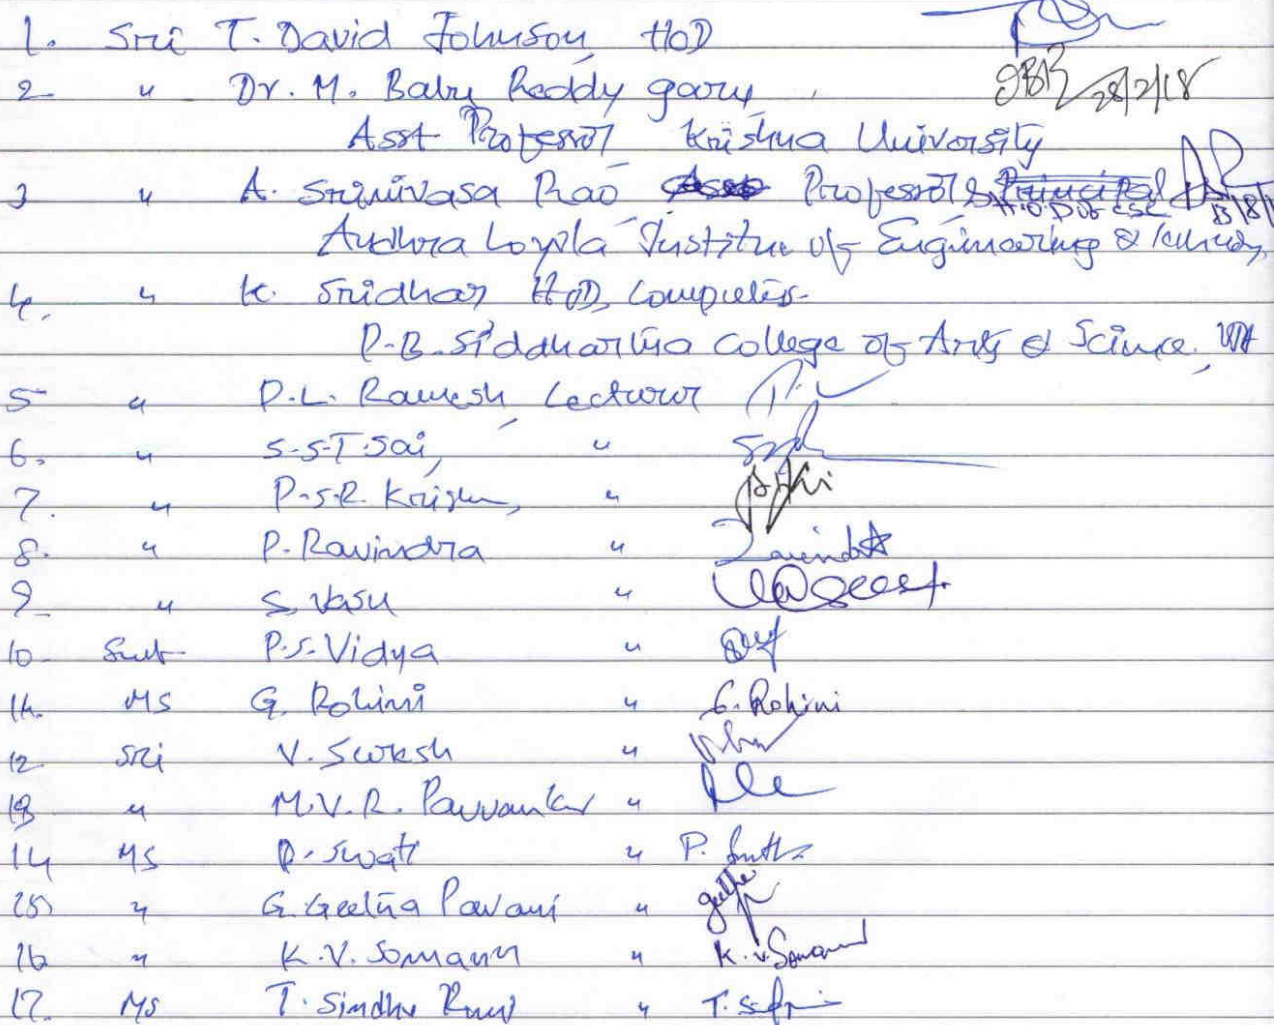 1. Sri T. David Johnson, HOD
2 " Dr. M. Baby Reddy garu, 28/2/18
Asst Professor Krishna University
3 " A. Srinivasa Rao Professor & H.O.D of CSE
Andhra Loyola Institute of Engineering &
4. " K. Sridhar HOD, Computers
P.B. Siddhartha College of Arts & Science,
5 " P.L. Ramesh, Lecturer
6. " S.S.T. Sai, "
7. " P.S.R. Krishna, "
8. " P. Ravindra "
9 " S. Vasu "
10 Smt P.S. Vidya "
11. MS G. Rohini " G. Rohini
12 Sri V. Suresh "
13 " M.V.R. "
14 MS P. Swati " P.
15) " G. Geetha Pavani "
16 " K.V. " K.V.
17. MS T. Sindhu "